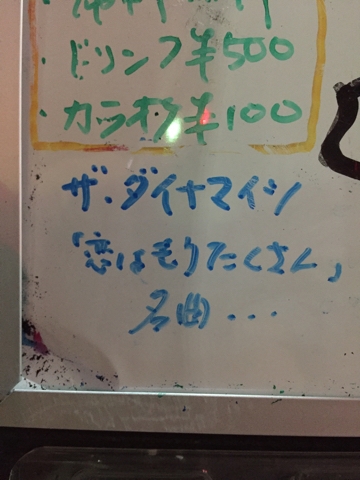 ・ドリンク¥500
・カラオケ¥100
ザ・ダイナマイツ
「恋はもうたくさん」
名曲...